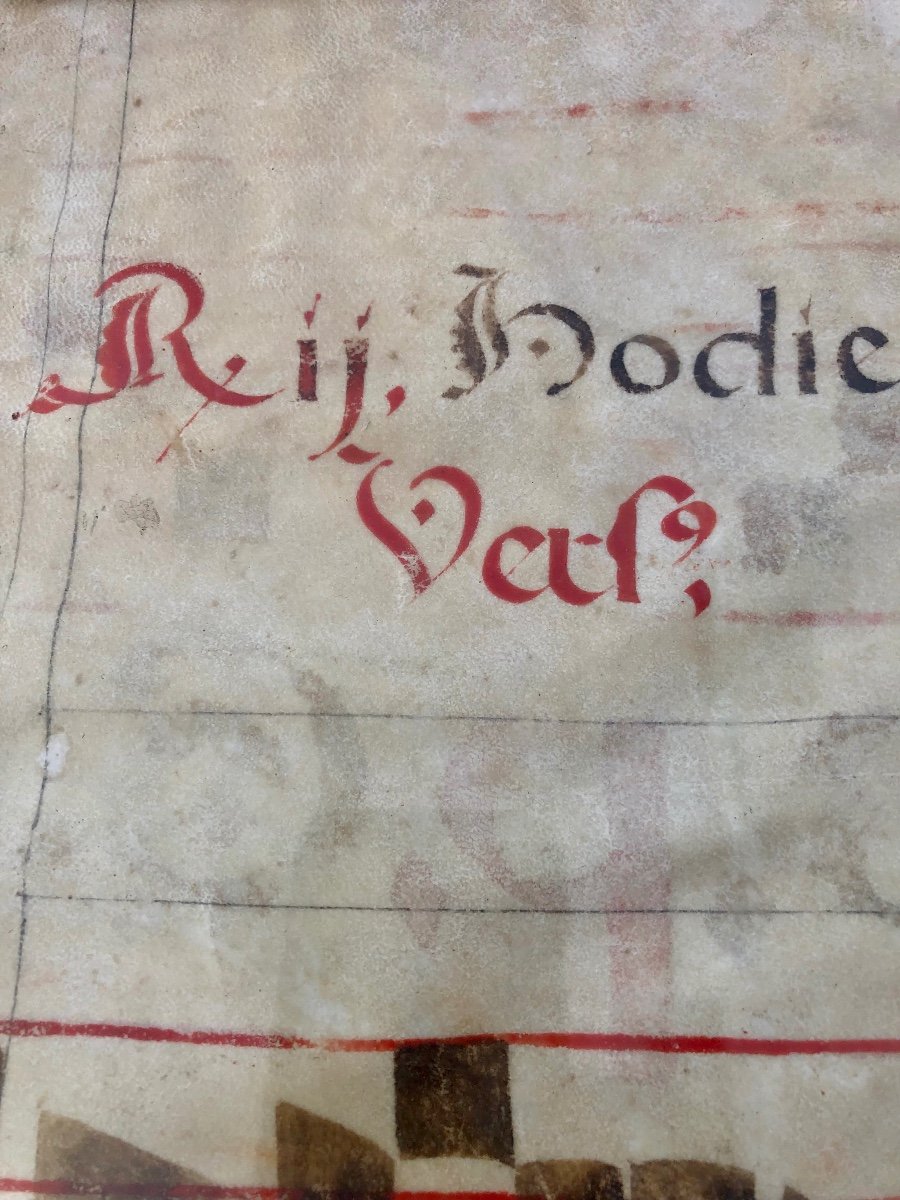 ℟. ij. Hodie
Vers⁹,